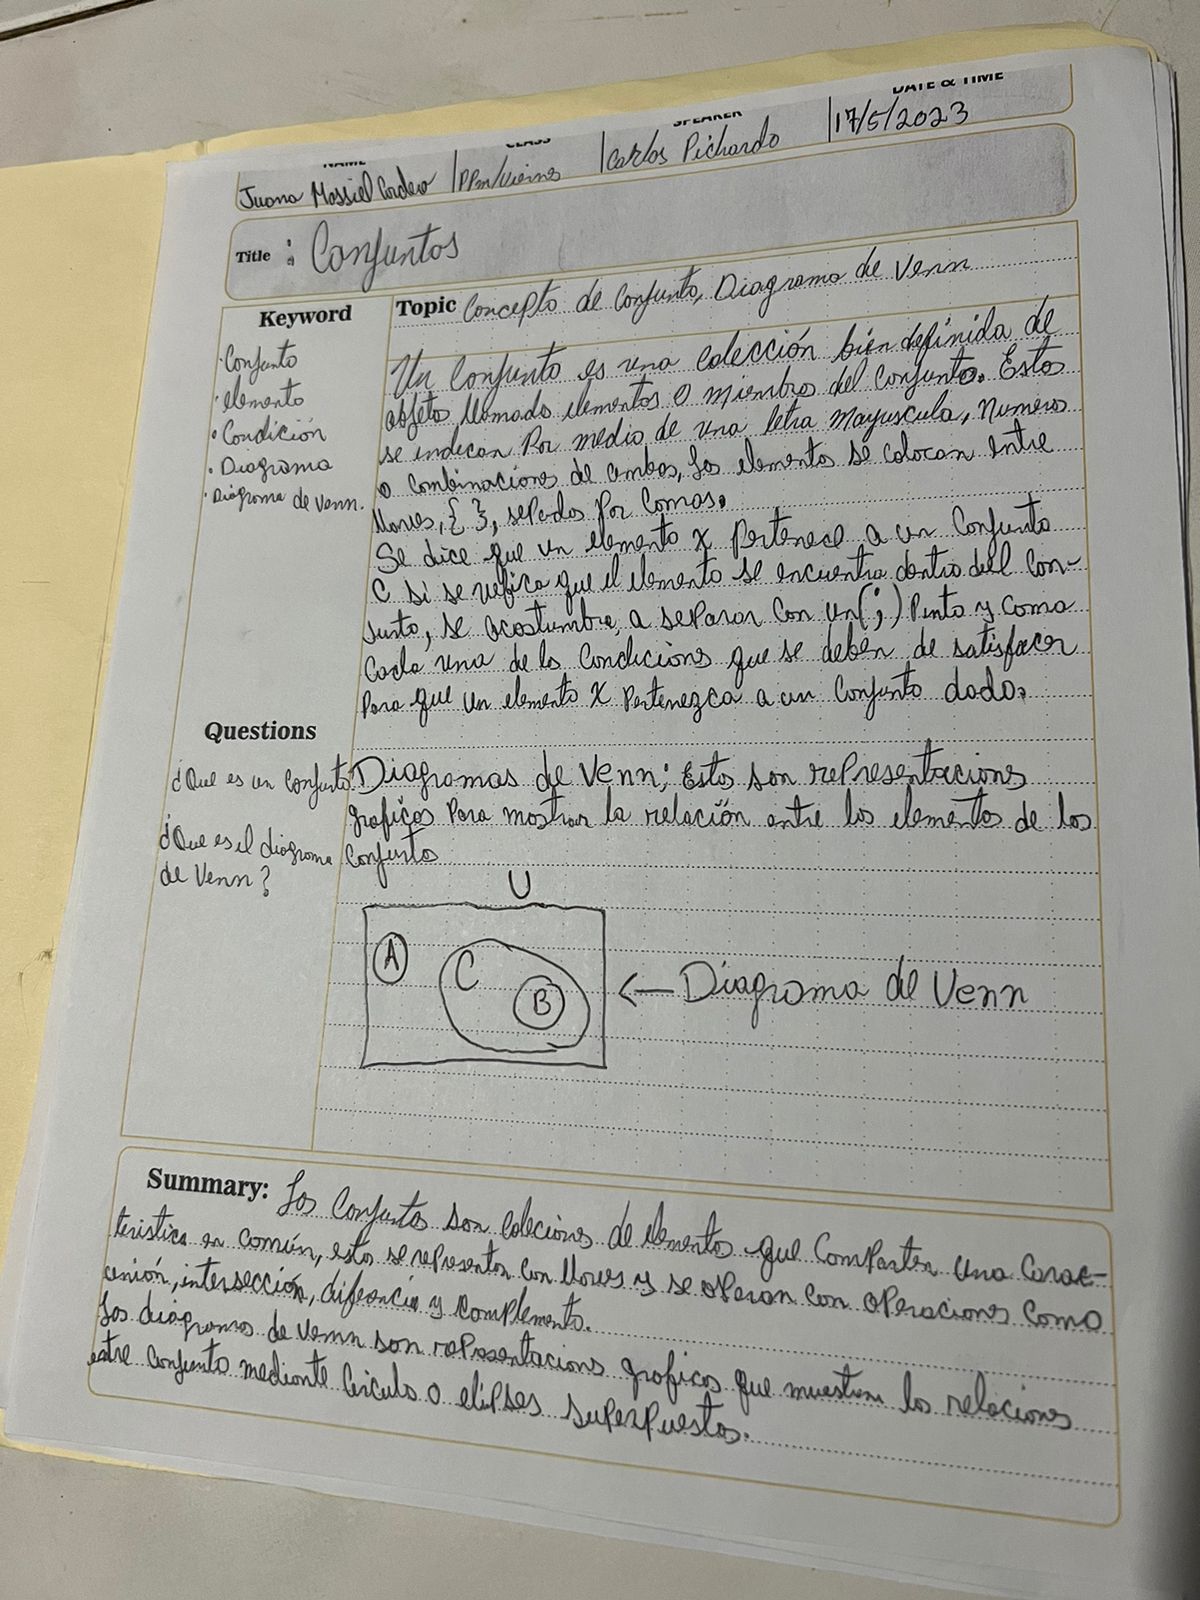 NAME
CLASS
SPEAKER
DATE & TIME
Juana Massiel Cordero
PPm/Viernes
Carlos Pichardo
17/5/2023
Title : Conjuntos
Keyword
· Conjunto
· elemento
· Condición
· Diagrama
· Diagrama de Venn.
Questions
¿Que es un conjunto
¿Que es el diagrama
de Venn?
Topic Concepto de Conjunto, Diagrama de Venn
Un Conjunto es una colección bien definida de
objeto, llamado elementos o miembro del conjunto. Estos
se indican por medio de una letra mayuscula, numeros
o combinaciones de ambos, los elementos se colocan entre
llaves, { }, sepados por comas.
Se dice que un elemento x pertenece a un Conjunto
C si se vefica que el elemento se encuentra dentro dell Con-
junto, se acostumbra, a separar con un (;) Punto y coma
Cada una de las Condiciones que se deben de satisfacer
Para que un elemento x pertenezca a un Conjunto dado.
Diagramas de Venn: Estos son representaciones
graficas Para mostrar la relación entre los elementos de los
Conjuntos
U
A
C
B
← Diagrama de Venn
Summary: Los Conjuntos son coleciones de elementos que comparten una carac-
teristica en común, estos se representan con llaves y se operan con operaciones como
unión, intersección, diferencia y complemento.
Los diagramas de Venn son representaciones graficas que muestran las relaciones
entre conjunto mediante circulo o elipses superpuestos.